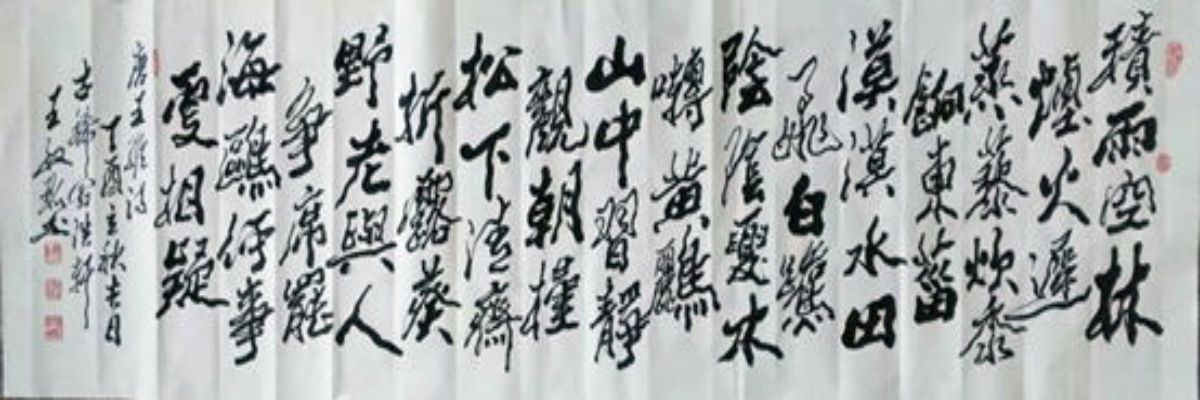 積雨空林
煙火遲
蒸藜炊黍
餉東菑
漠漠水田
飛白鷺
陰陰夏木
囀黃鸝
山中習靜
觀朝槿
松下清齋
折露葵
野老與人
爭席罷
海鷗何事
更相疑
唐王維詩
丁酉立秋吉日
古徐浩軒
王敏書